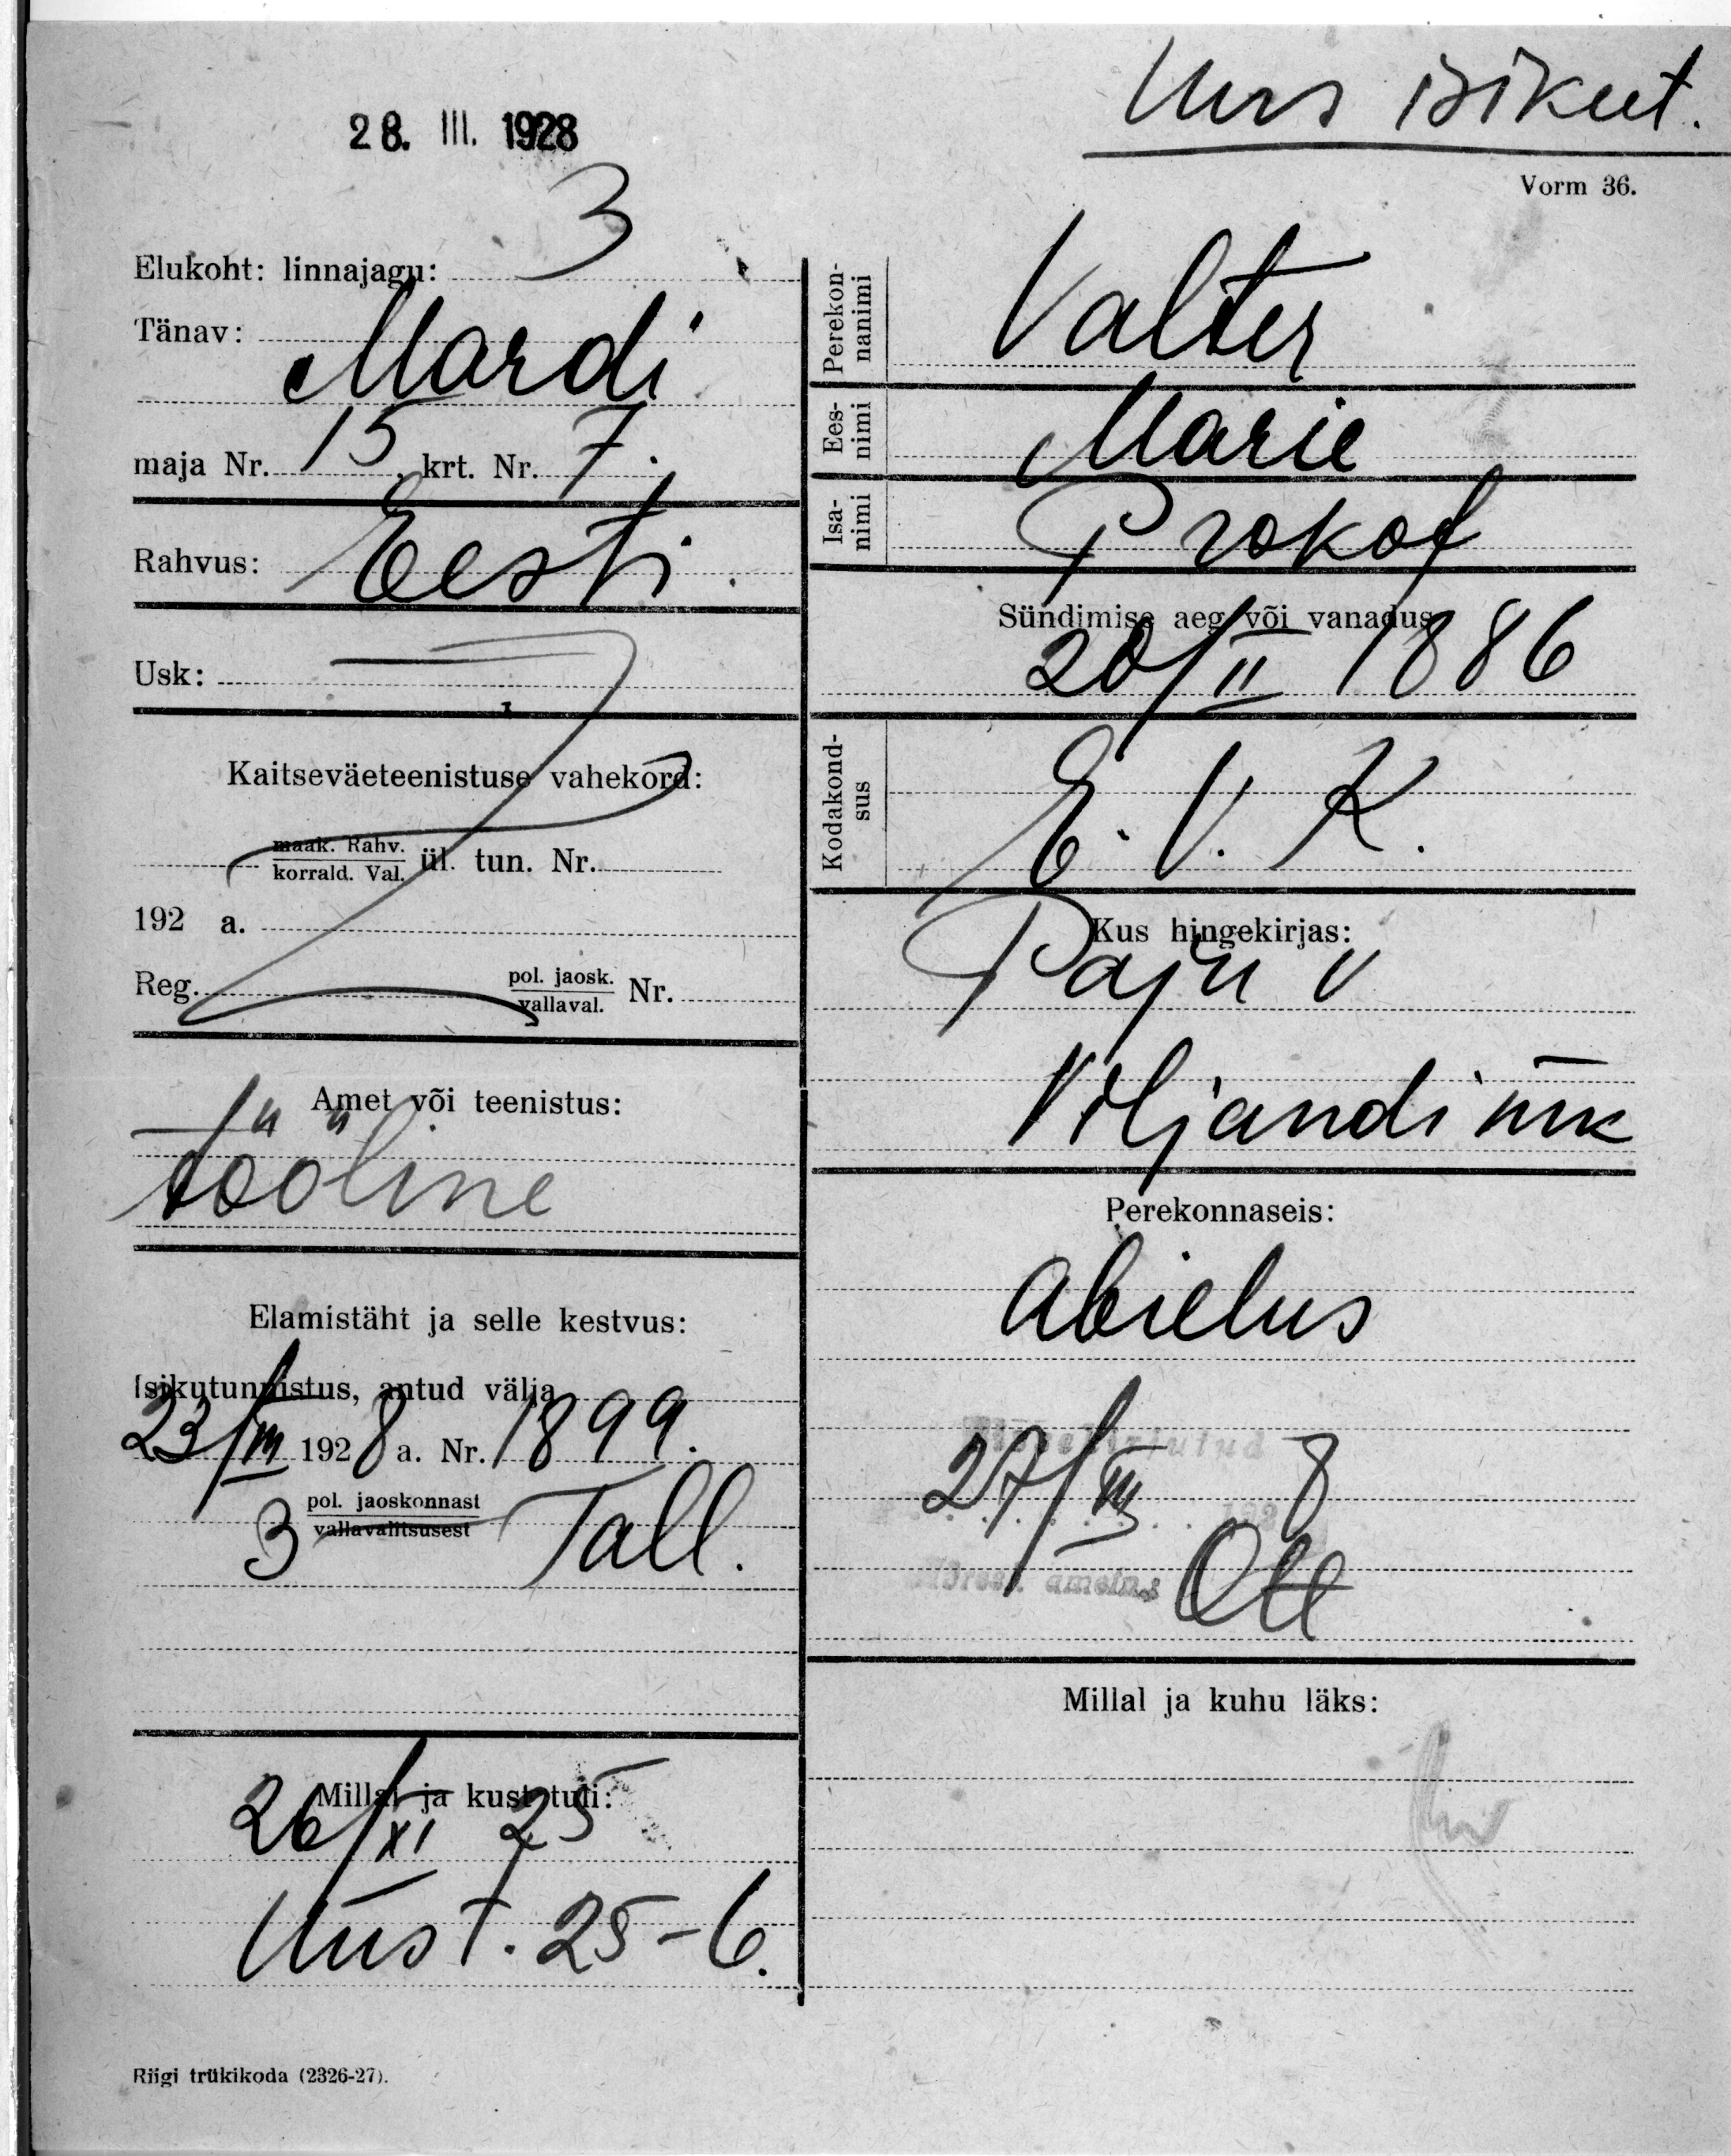 Uus isikut.
28. III. 1928
Vorm 36.
Elukoht: linnajagu: 3
Tänav: Mardi
maja Nr. 15, krt. Nr. 7.
Rahvus: Eesti.
Usk:
Kaitseväeteenistuse vahekord:
maak. Rahv.
korrald. Val. ül. tun. Nr.
192 a.
Reg. pol. jaosk.
vallaval. Nr.
Amet või teenistus:
tööline
Elamistäht ja selle kestvus:
Isikutunnistus, antud välja
23/III 1928 a. Nr. 1899.
3 pol. jaoskonnast
vallavalitsusest Tall.
Millal ja kust tuli:
26/XI 25
Uus T. 25-6.
Riigi trükikoda (2326-27).
Perekon-
nanimi Valter
Ees-
nimi Marie
Isa-
nimi Prokof
Sündimise aeg või vanadus
20/II 1886
Kodakond-
sus E. V. K.
Kus hingekirjas:
Paju v
Viljandi mk
Perekonnaseis:
Abielus
27/III 8
Ott
Millal ja kuhu läks: